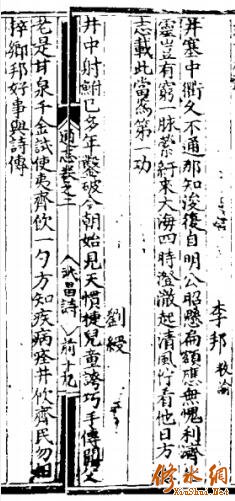 井塞中衢久不通那知浚後自明公昭懸扁額應無愧利濟
靈豈有窮脉縈紆来大海四時澄澈起清風佇看他日方
志載此當為第一功
李邦 教諭
井中射鮒已多年鑿破今朝始見天慣捷兒童
巧手傳
劉綬
老是甘泉千金試使夷齊飲一勺方知疾病痊井飲齊民勿相
捽鄉邦好事與詩傳
通志卷之二
武昌詩
前十九
修水網